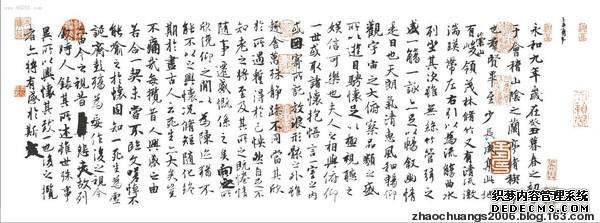 永和九年歲在癸丑暮春之初會
于會稽山陰之蘭亭脩禊事
也羣賢畢至少長咸集此地
有崇山峻領茂林脩竹又有清流激
湍暎帶左右引以為流觴曲水
列坐其次雖無絲竹管弦之
盛一觴一詠亦足以暢敘幽情
是日也天朗氣清惠風和暢仰
觀宇宙之大俯察品類之盛
所以遊目騁懷足以極視聽之
娛信可樂也夫人之相與俯仰
一世或取諸懷抱悟言一室之內
或因寄所託放浪形骸之外雖
趣舍萬殊靜躁不同當其欣
於所遇暫得於己怏然自足不
知老之將至及其所之既惓情
隨事遷感慨係之矣向之所
欣俛仰之閒以為陳迹猶不
能不以之興懷況脩短隨化終
期於盡古人云死生亦大矣豈
不痛哉每攬昔人興感之由
若合一契未嘗不臨文嗟悼不
能喻之於懷固知一死生為虛
誕齊彭殤為妄作後之視今
亦由今之視昔悲夫故列
敘時人錄其所述雖世殊事
異所以興懷其致一也後之攬
者亦將有感於斯文
织梦内容管理系统
DEDECMS.COM
zhaochuangs2006.blog.163.com